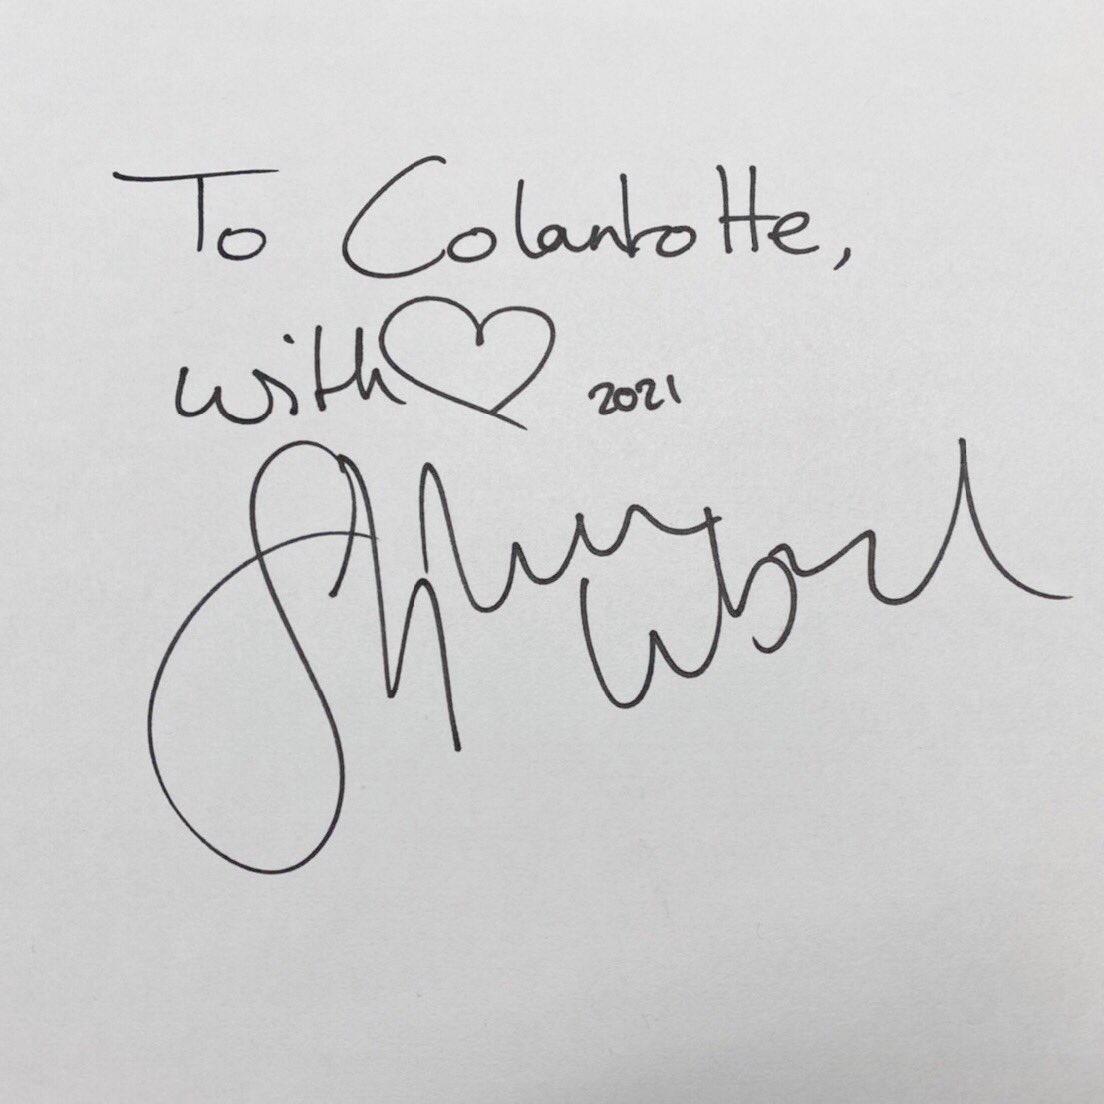 To Colantotte,
with♡ 2021